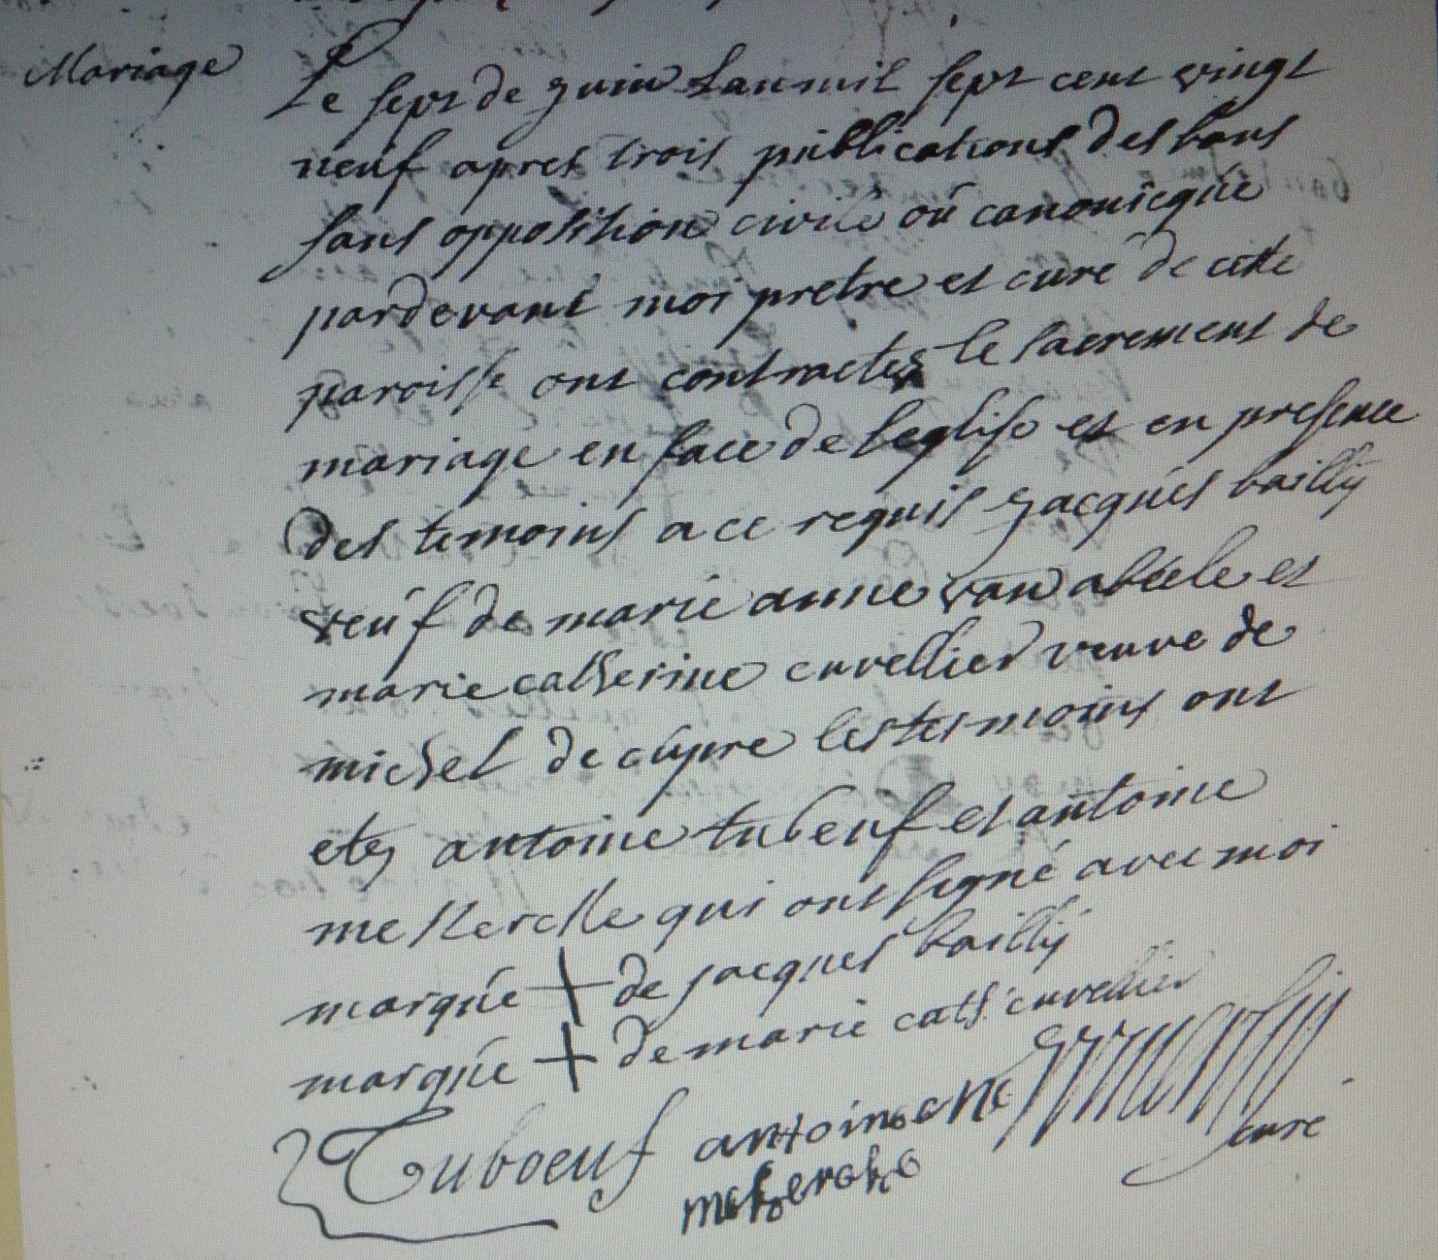 Mariage
Le sept de Juin Lan mil sept cent vingt
neuf apres trois publications des bans
sans opposition civile où canonicque
pardevant moi pretre et curé de cette
paroisse ont contractez le sacrement de
mariage en face de leglise et en presence
des temoins a ce requis Jacques bailly
veuf de marie anne van abeele et
marie catherine cuvellier veuve de
michel de cupre les tesmoins ont
etez antoine tubeuf et antoine
mesterelle qui ont signé avec moi
marque + de jacques bailly
marque + de marie cath cuvellier
Tuboeuf antoine
curé